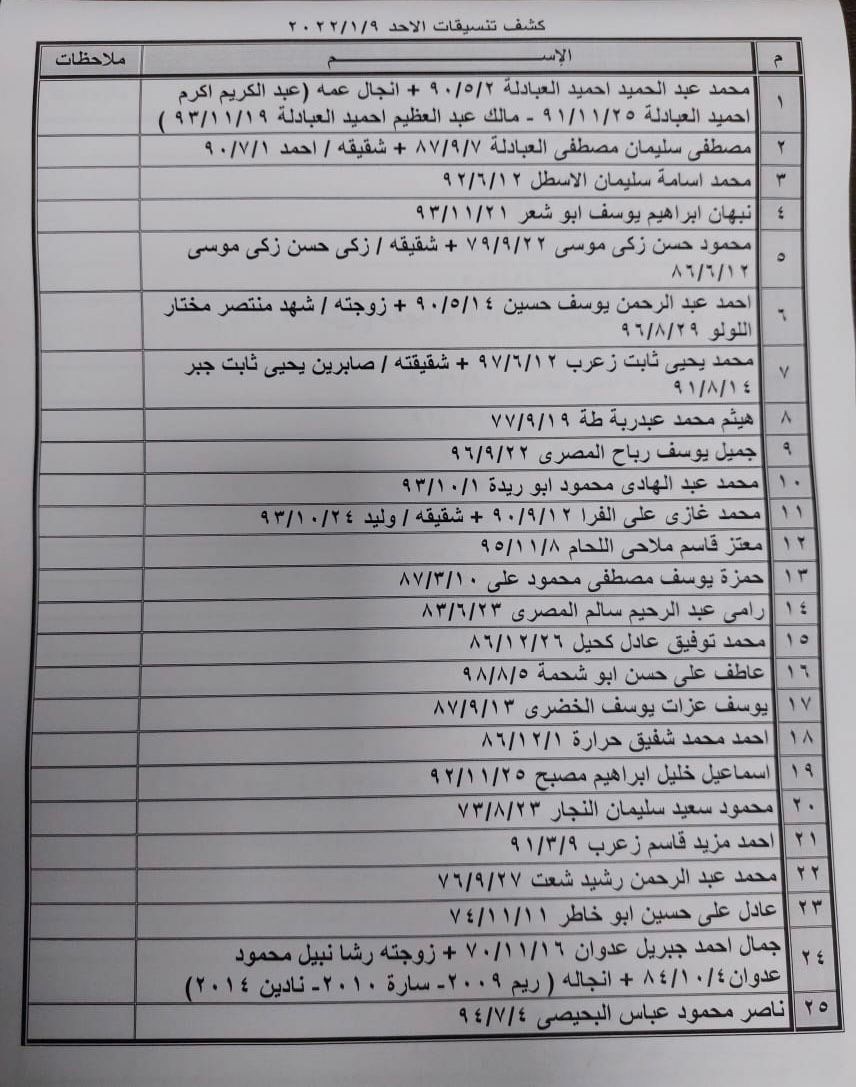 كشف تنسيقات الاحد ٢٠٢٢/١/٩
م الإســــــم ملاحظات
١ محمد عبد الحميد احميد العبادلة ٩٠/٥/٢ + انجال عمه (عبد الكريم اكرم
احميد العبادلة ٩١/١١/٢٥ - مالك عبد العظيم احميد العبادلة ٩٣/١١/١٩ )
٢ مصطفى سليمان مصطفى العبادلة ٨٧/٩/٧ + شقيقه / احمد ٩٠/٧/١
٣ محمد اسامة سليمان الاسطل ٩٢/٦/١٢
٤ نبهان ابراهيم يوسف ابو شعر ٩٣/١١/٢١
٥ محمود حسن زكى موسى ٧٩/٩/٢٢ + شقيقه / زكى حسن زكى موسى
٨٦/٦/١٢
٦ احمد عبد الرحمن يوسف حسين ٩٠/٥/١٤ + زوجته / شهد منتصر مختار
اللولو ٩٦/٨/٢٩
٧ محمد يحيى ثابت زعرب ٩٧/٦/١٢ + شقيقته / صابرين يحيى ثابت جبر
٩١/٨/١٤
٨ هيثم محمد عبدربة طة ٧٧/٩/١٩
٩ جميل يوسف رباح المصرى ٩٦/٩/٢٢
١٠ محمد عبد الهادى محمود ابو ريدة ٩٣/١٠/١
١١ محمد غازى على الفرا ٩٠/٩/١٢ + شقيقه / وليد ٩٣/١٠/٢٤
١٢ معتز قاسم ملاحى اللحام ٩٥/١١/٨
١٣ حمزة يوسف مصطفى محمود على ٨٧/٣/١٠
١٤ رامى عبد الرحيم سالم المصرى ٨٣/٦/٢٣
١٥ محمد توفيق عادل كحيل ٨٦/١٢/٢٦
١٦ عاطف على حسن ابو شحمة ٩٨/٨/٥
١٧ يوسف عزات يوسف الخضرى ٨٧/٩/١٣
١٨ احمد محمد شفيق حرارة ٨٦/١٢/١
١٩ اسماعيل خليل ابراهيم مصبح ٩٢/١١/٢٥
٢٠ محمود سعيد سليمان النجار ٧٣/٨/٢٣
٢١ احمد مزيد قاسم زعرب ٩١/٣/٩
٢٢ محمد عبد الرحمن رشيد شعت ٧٦/٩/٢٧
٢٣ عادل على حسين ابو خاطر ٧٤/١١/١١
٢٤ جمال احمد جبريل عدوان ٧٠/١١/١٦ + زوجته رشا نبيل محمود
عدوان٨٤/١٠/٤ + انجاله ( ريم ٢٠٠٩- سارة ٢٠١٠- نادين ٢٠١٤)
٢٥ ناصر محمود عباس البحيصى ٩٤/٧/٤